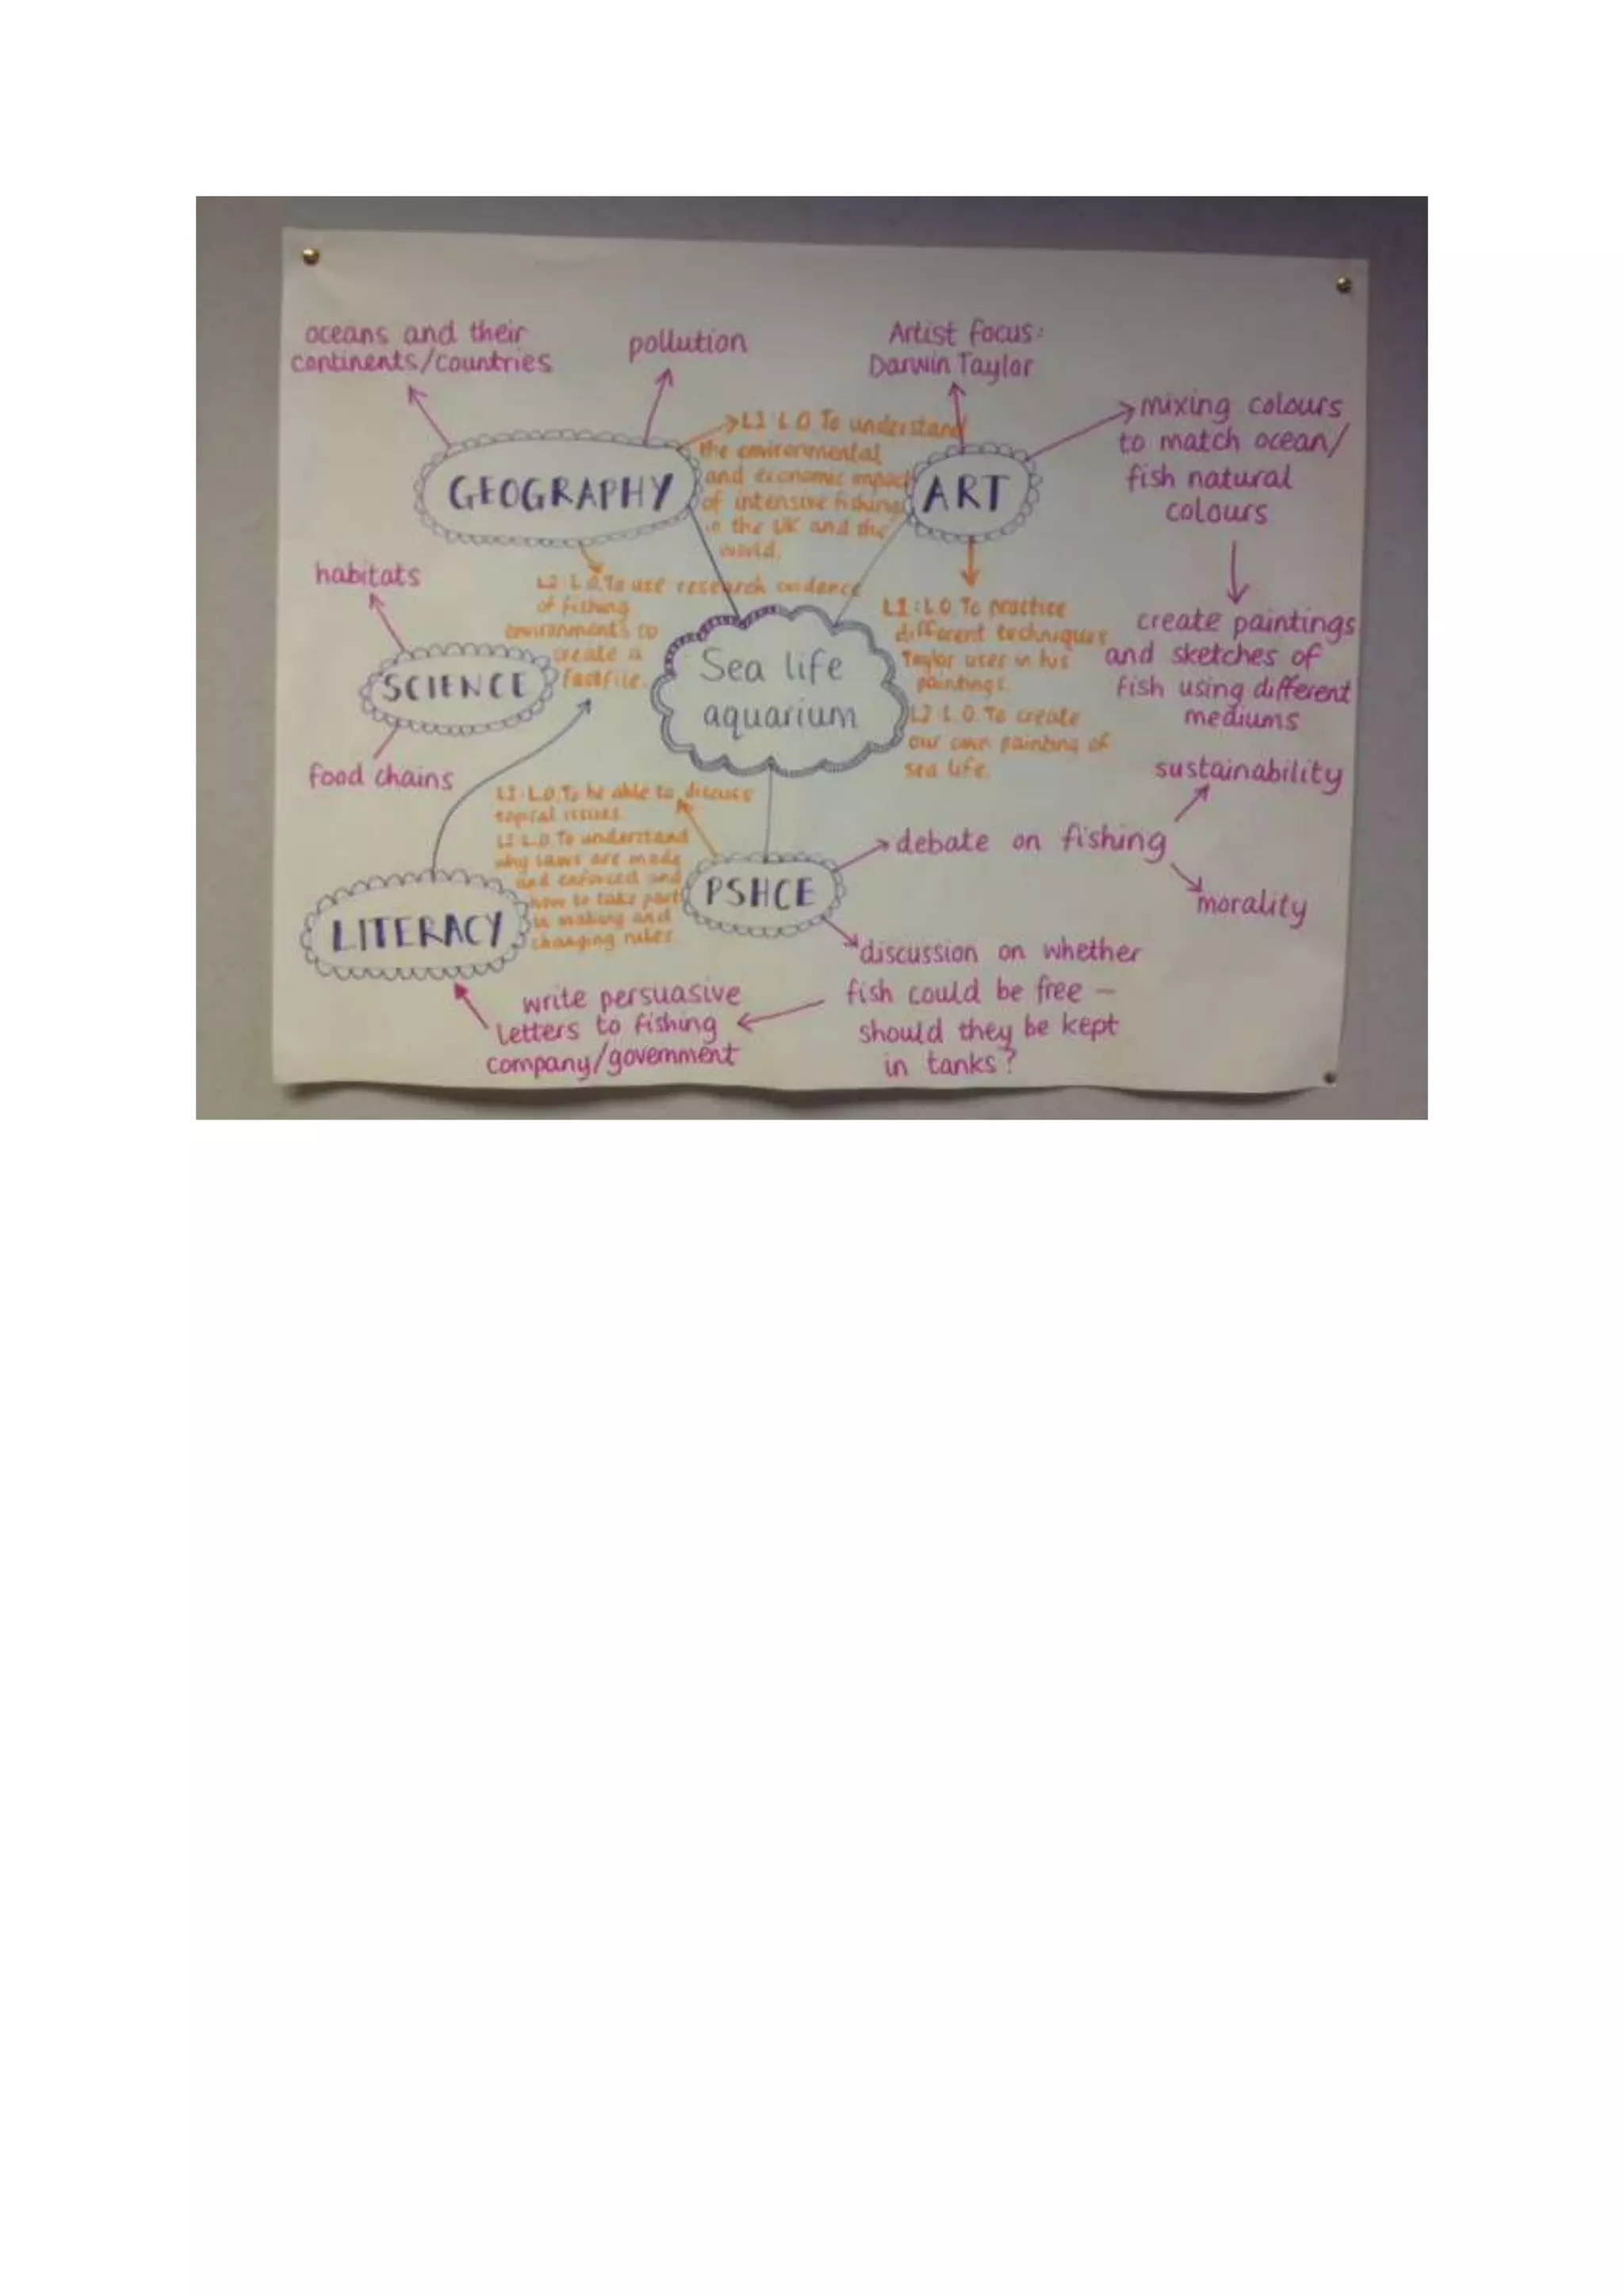 oceans and their
continents/countries
pollution
Artist focus:
Darwin Taylor
mixing colours
to match ocean/
fish natural
colours
create paintings
and sketches of
fish using different
mediums
GEOGRAPHY
L1: L.O. To understand
the environmental
and economic impact
of intensive fishing
in the UK and the
world.
ART
L2: L.O. To use research evidence
of fishing
environments to
create a
factfile.
L1: L.O. To practice
different techniques
Taylor uses in his
paintings.
L2: L.O. To create
our own painting of
sea life.
habitats
SCIENCE
food chains
Sea life
aquarium
L1: L.O. To be able to discuss
topical issues.
L2: L.O. To understand
why laws are made
and enforced and
how to take part
in making and
changing rules.
PSHCE
debate on fishing
sustainability
morality
discussion on whether
fish could be free –
should they be kept
in tanks?
LITERACY
write persuasive
letters to fishing
company/government